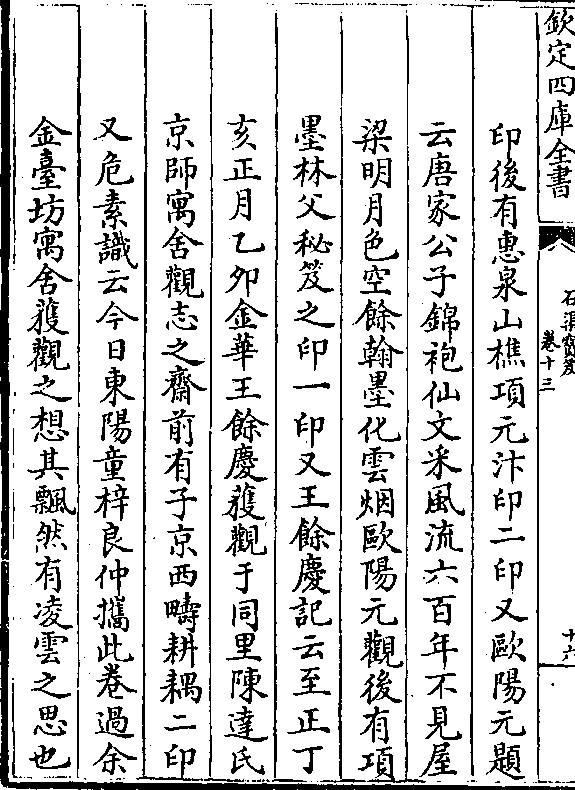 欽定四庫全書
石渠寶笈
卷十三
十六
印後有惠泉山樵項元汴印二印又歐陽元題
云唐家公子錦袍仙文采風流六百年不見屋
梁明月色空餘翰墨化雲烟歐陽元觀後有項
墨林父秘笈之印一印又王餘慶記云至正丁
亥正月乙夘金華王餘慶獲觀于同里陳達氏
京師寓舍觀志之齋前有子京西疇耕耦二印
又危素識云今日東陽童梓良仲攜此卷過余
金臺坊寓舍獲觀之想其飄然有凌雲之思也